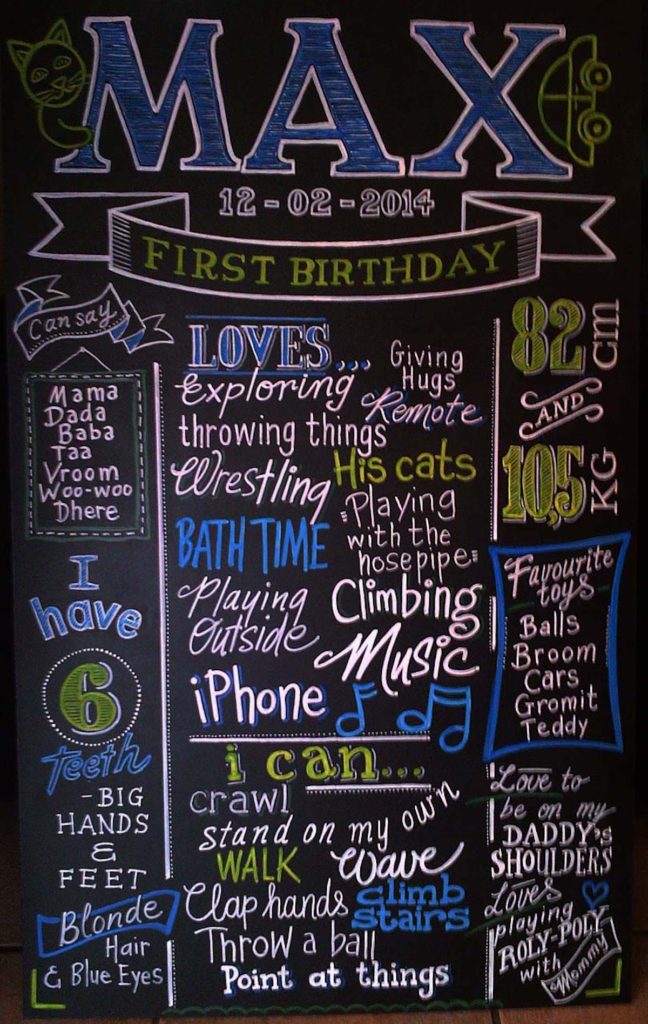 MAX
12-02-2014
FIRST BIRTHDAY
Can say
Mama
Dada
Baba
Taa
Vroom
Woo-woo
Dhere
I
have
6
Teeth
-BIG
HANDS
&
FEET
Blonde
Hair
& Blue Eyes
LOVES...
Exploring
Giving
Hugs
Remote
throwing things
Wrestling
His cats
BATH TIME
"Playing
with the
hosepipe"
Playing
Outside
Climbing
Music
iPhone
i can...
crawl
stand on my own
WALK
Wave
Clap hands
climb
stairs
Throw a ball
Point at things
82 cm
AND
10,5 KG
Favourite
toys
Balls
Broom
Cars
Gromit
Teddy
Love to
be on my
DADDY's
SHOULDERS
Loves
playing
ROLY-POLY
with Mommy